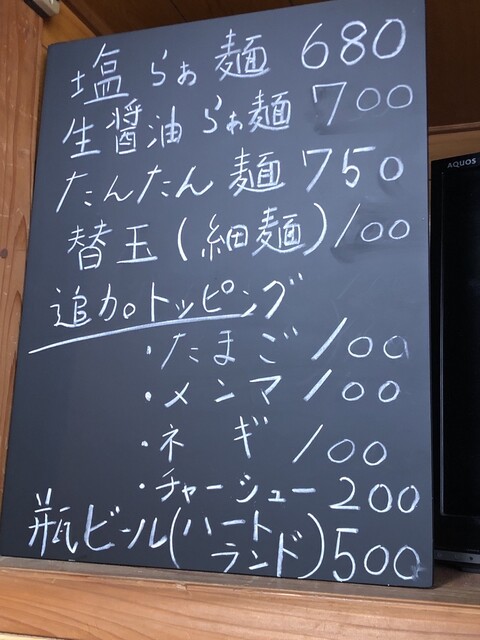 塩らぁ麺 680
生醤油らぁ麺 700
たんたん麺 750
替玉(細麺) 100
追加トッピング
・たまご 100
・メンマ 100
・ネギ 100
・チャーシュー 200
瓶ビール(ハート
ランド) 500
AQUOS